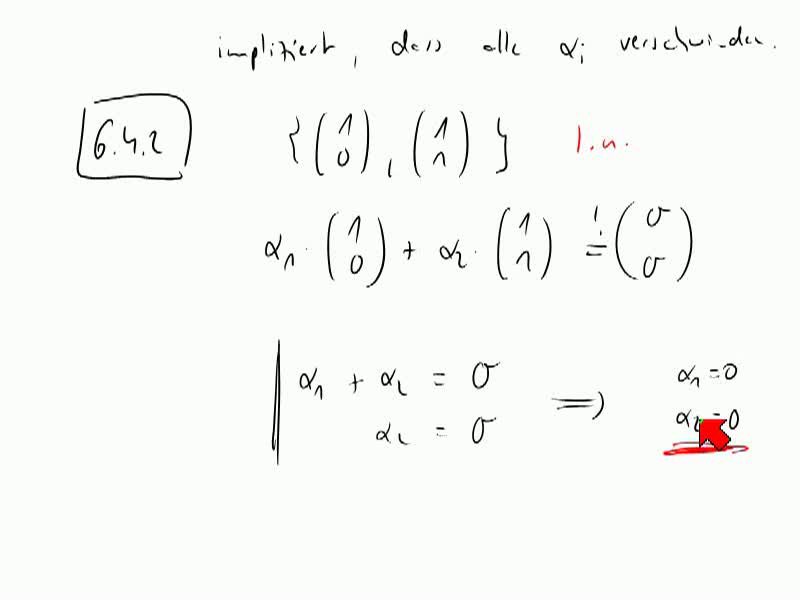 impliziert, dass alle αi verschwinden.
6.4.2 {(1 0), (1 1)} l.u.
α1 · (1 0) + α2 · (1 1) != (0 0)
α1 + α2 = 0 ⟹ α1 = 0
α2 = 0 α2 = 0